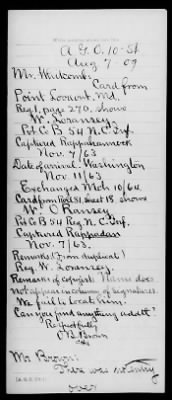 A.G.O. 10-St
Aug 7-09
Mr. Widcomb:
Card from
Point Lookout, Md.
Reg 1, page 270, shows
W. Loramsey.
Pvt Co B 54 N.C. Inf.
Captured Rappahannock
Nov. 7/63
Date of arrival Washington
Nov. 11/63
Exchanged Mch 10/64.
Card from Roll 51, sheet 18 shows
W. O Ramsey
Pvt Co B 54 Reg. N.C. Inf.
Captured Rappodan
Nov. 7/63.
Remarks: (From duplicate)
Reg. W. Loramsey.
Remarks of copyist: Name does
not appear in column of signatures.
We fail to locate him.
Can you find anything addtl?
Respectfully
Brown
Mr Brown:
There was no entry
over